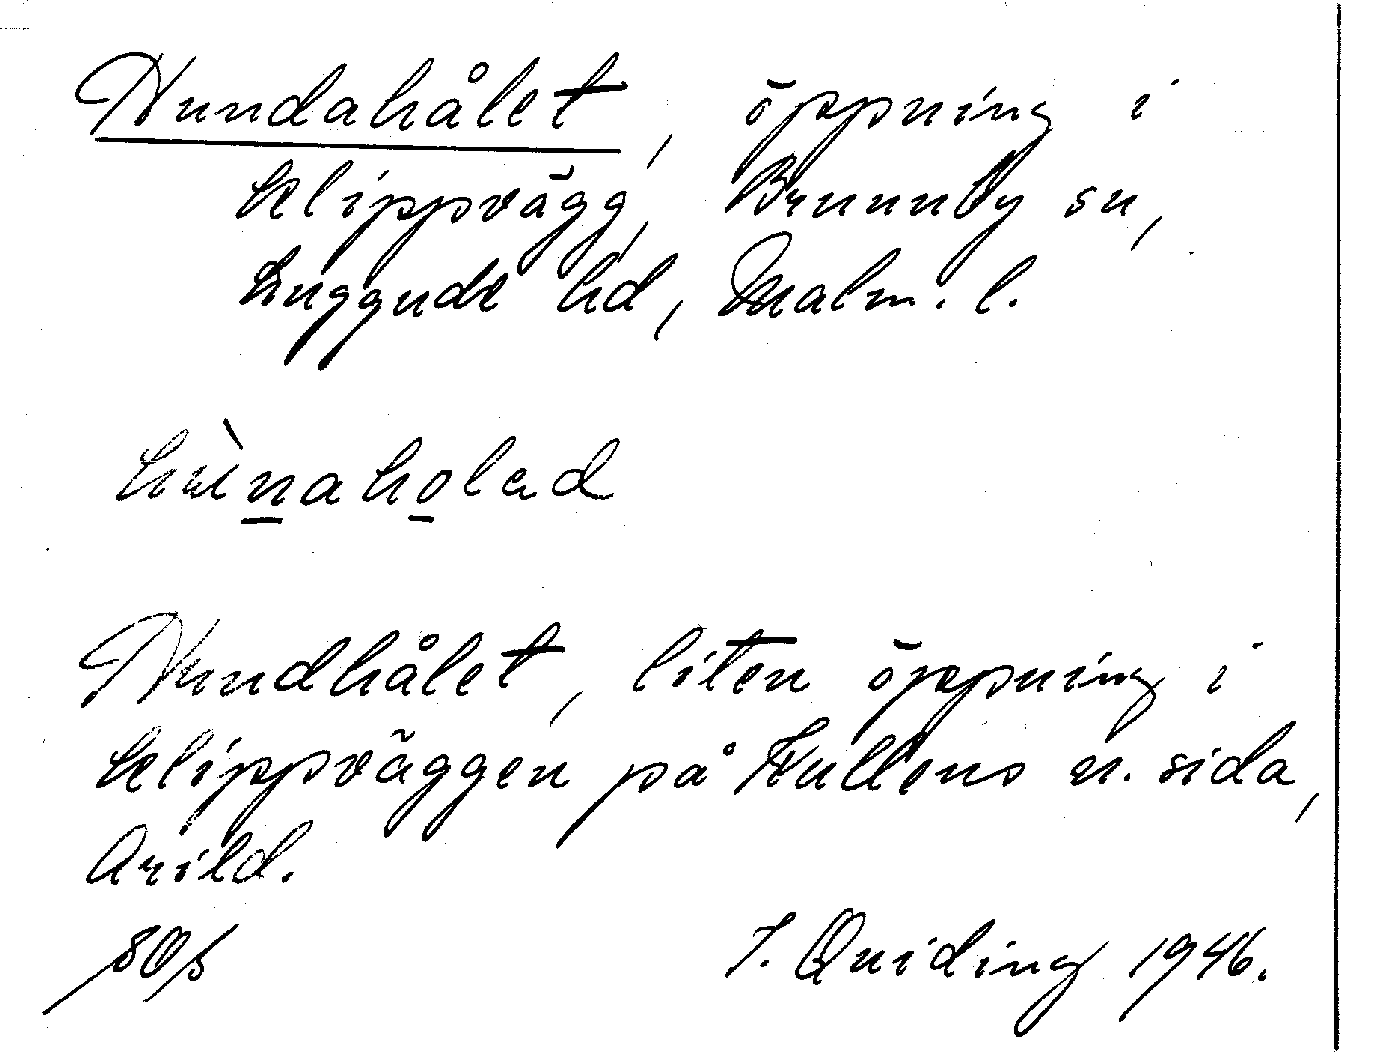 Hundahålet, öppning i
klippvägg, Brunnby sn,
Luggude hd, Malm. l.
hùnaholad
Hundhålet, liten öppning i
klippväggen på Kullens n. sida,
Arild.
J. Quiding 1946.